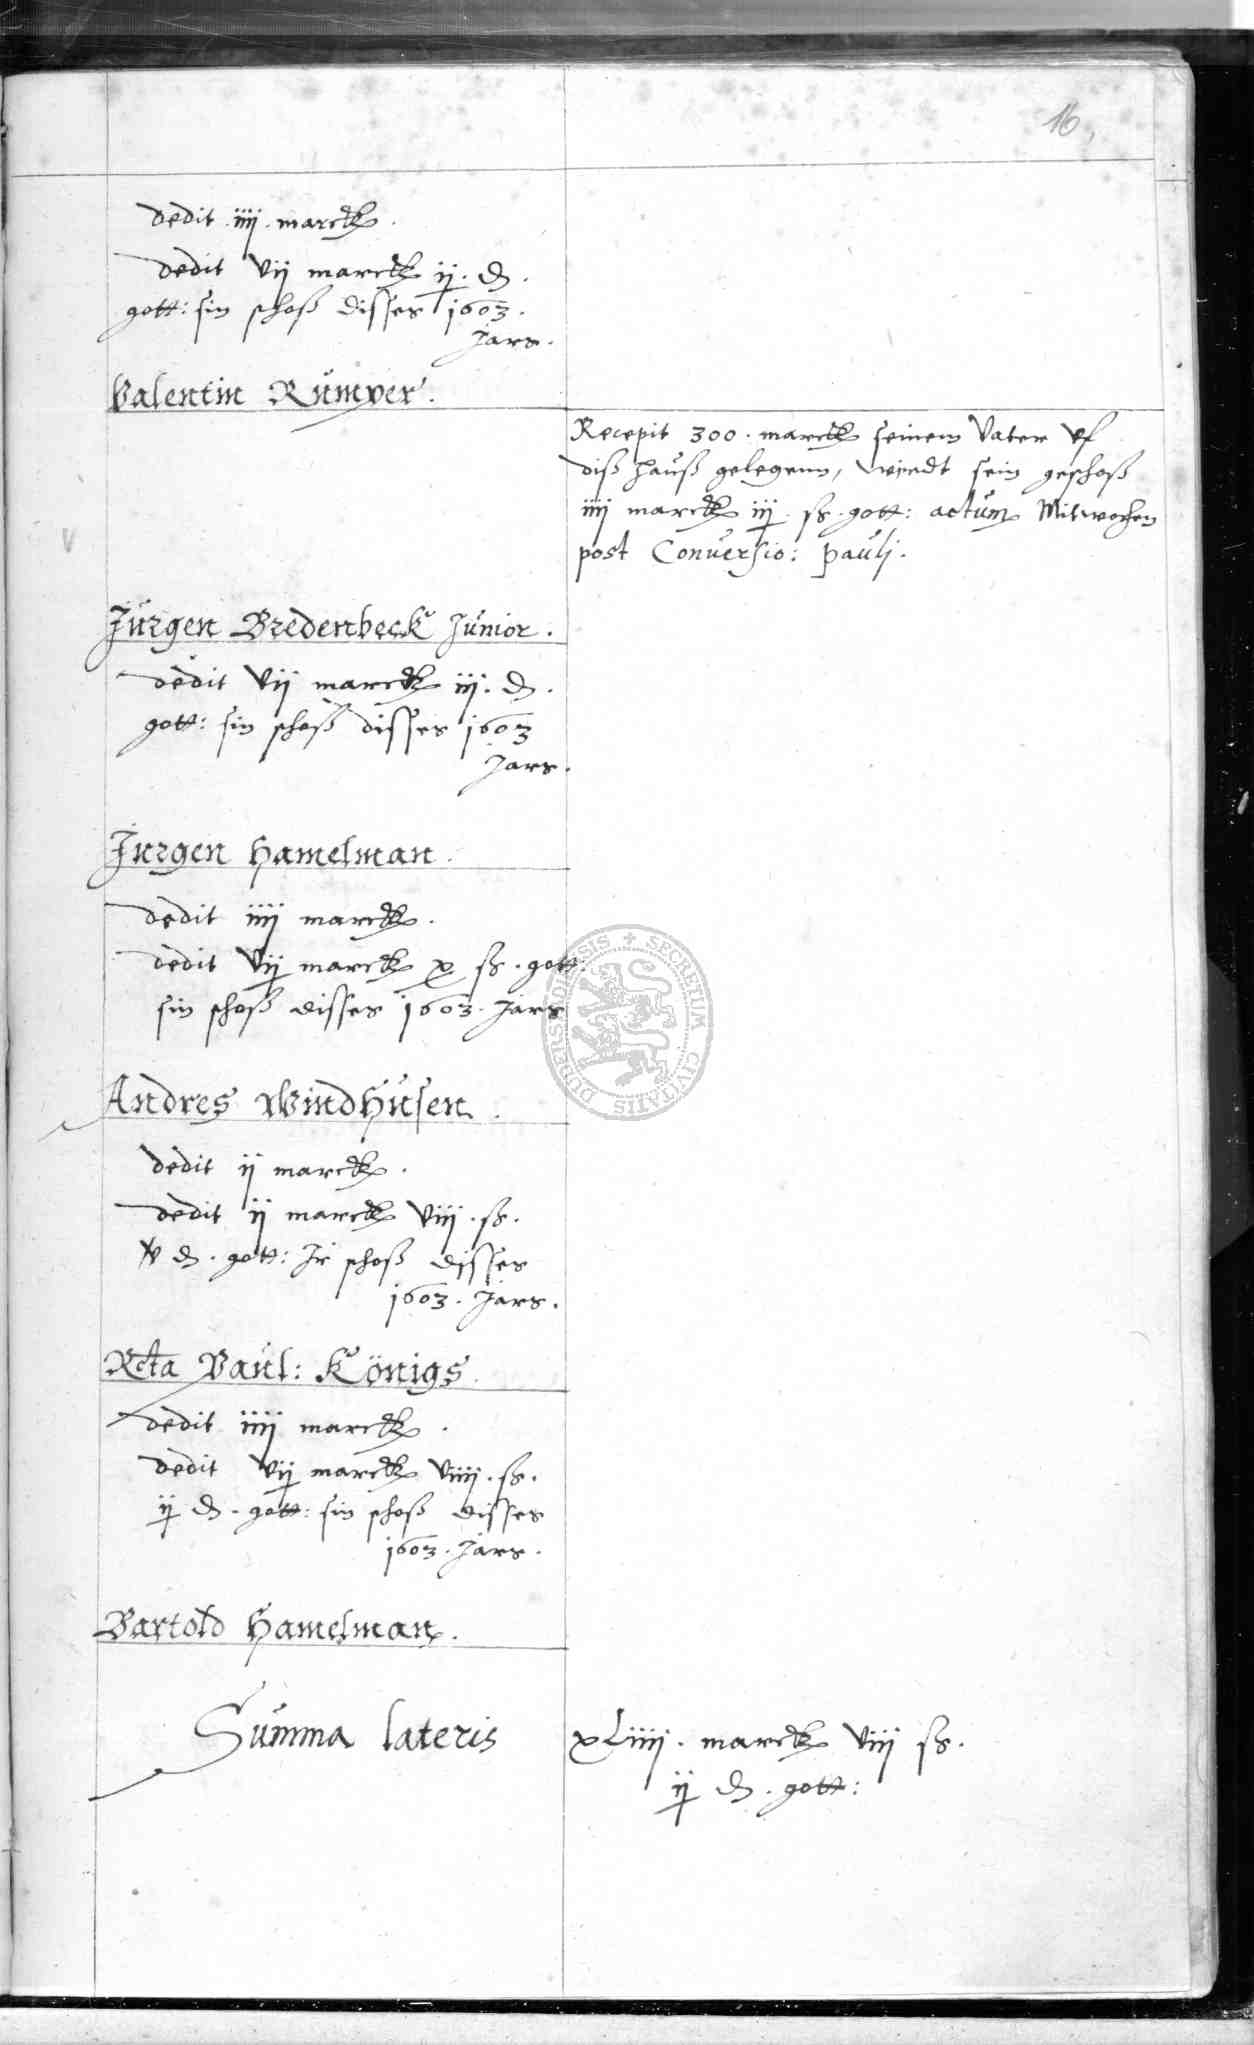 16,
dedit . iiij . marck .
dedit vij marck ij . d .
gott: sin schoß disses 1603 .
Jars .
Valentin Rümper .
Recepit 300 . marck seinem Vater vf
diß hauß gelegenn, wirdt sein geschoß
iiij marck iij . ß . gott: actum Mitwochen
post Conuersio: Paulj .
Jürgen Bredenbeck Junior .
dedit vij marck iij . d .
gott: sin schoß disses 1603
Jars .
Jurgen Hamelman .
dedit iiij marck .
dedit vij marck x ß . gott:
sin schoß disses 1603 . Jars
Andres Windhusen .
dedit ij marck .
dedit ij marck viij . ß .
v d . gott: Ir schoß disses
1603 . Jars .
Rcta Paul: Königs .
dedit iiij marck .
dedit vij marck viiij . ß .
ij d . gott: sin schoß disses
1603 . Jars .
Bartold Hamelman .
Summa lateris xLiiij . marck viij ß .
ij d . gott:
SECRETUM CIVITATIS DUDERSTADIENSIS